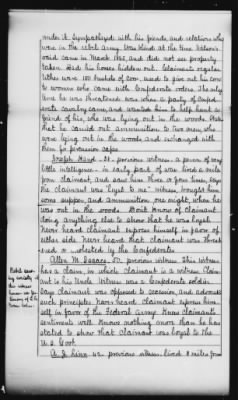 under it. Sympathized with his friends and relatives who
were in the rebel army. Was there at the time Wilson's
raid came in March 1865, and did not see property
taken. Had his horse hidden out. Claimants regular
tithes were 100 bushels of corn, used to give out his corn
to women who came with Confederate orders. The only
time he was threatened was when a party of Confed-
erate cavalry came, and wanted him to help hunt a
friend of his, who was lying out in the woods. States
that he carried out ammunition to two men, who
were lying out in the woods and exchanged with
them for percussion caps.
Joseph 21. previous witness. a person of very
little intelligence - in early part of war lived 2 miles
from claimant, and saw him then a few times, says
the claimant was "loyal to me" witness, brought him
some supper, and ammunition one night, when he
was out in the woods. Don't know of claimant
doing anything else to show that he was loyal.
Never heard claimant express himself in favor of
either side. Never heard that claimant was threat-
ened or molested by the Confederates.
Allen M. Isaacs. 50. previous witness. This witness
has a claim, in which claimant is a witness. Claim-
ant is his Uncle. Witness was a Confederate soldier.
Says claimant was opposed to secession, and advocated
such principles. Never heard claimant express him-
self, in favor of the Federal Army. Knows claimants
sentiments well. Knows nothing more than he has
stated to show that claimant was loyal to the
U.S. Govt.
A. J. previous witness lived 2 miles from